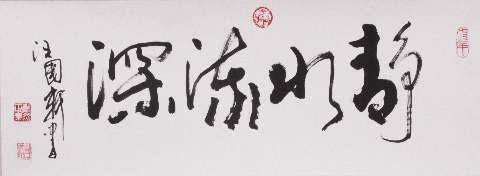 静水流深
汪国新书